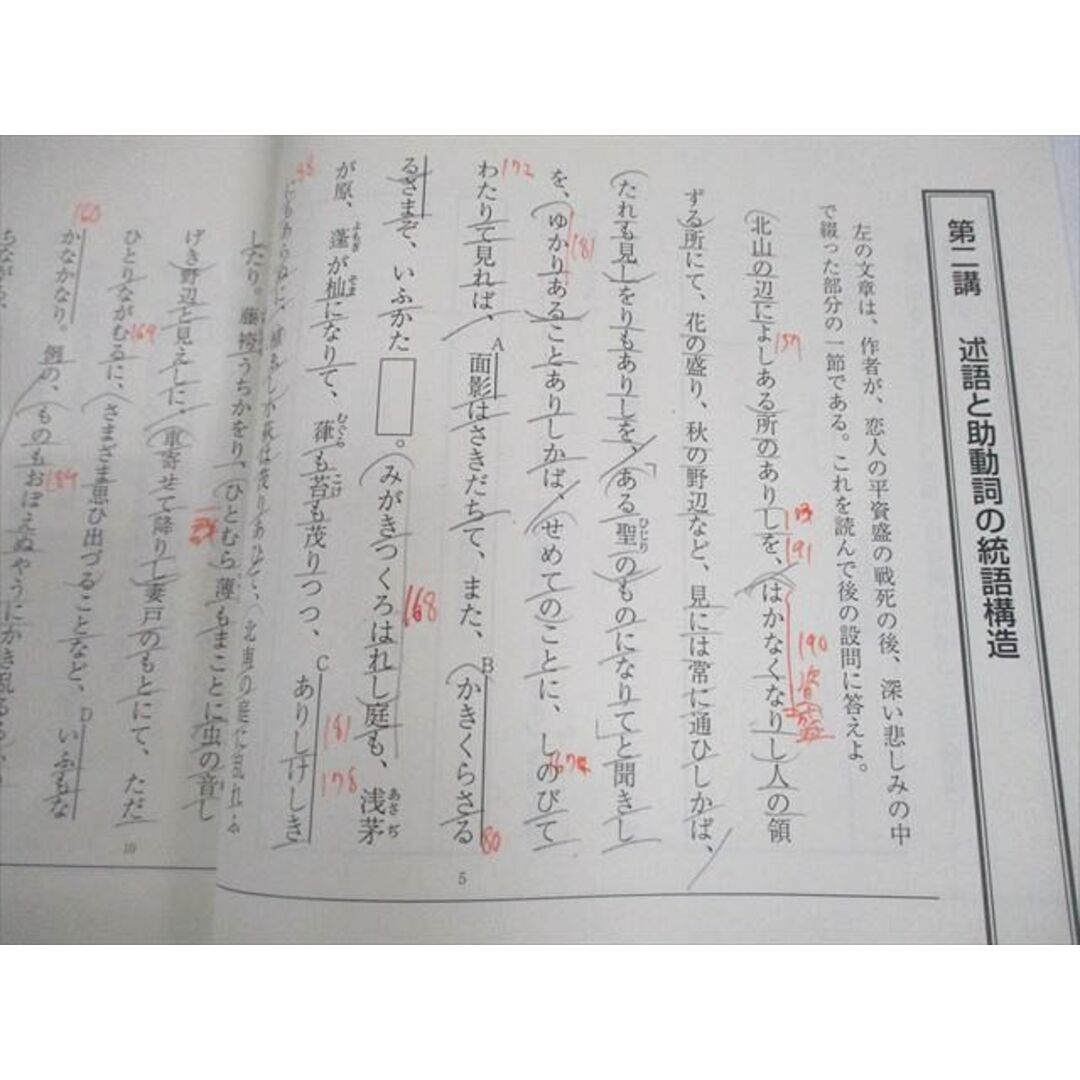 第二講　述語と助動詞の統語構造
左の文章は、作者が、恋人の平資盛の戦死の後、深い悲しみの中
で綴った部分の一節である。これを読んで後の設問に答えよ。
北山の辺によしある所のありしを、はかなくなりし人の領
157
193
191
190
資盛
ずる所にて、花の盛り、秋の野辺など、見には常に通ひしかば、
たれも見しをりもありしを、「ある聖のものになりて」と聞きし
ひじり
を、ゆかりあることありしかば、せめてのことに、しのびて
181
わたりて見れば、A面影はさきだちて、また、Bかきくらさる
172
80
るさまぞ、いふかた　　。みがきつくろはれし庭も、浅茅
168
あさぢ
5
が原、蓬が杣になりて、葎も苔も茂りつつ、Cありしけしき
よもぎ
そま
むぐら
こけ
181
178
したり。藤袴うちかをり、ひとむら薄もまことに虫の音し
げき野辺と見えしに、車寄せて降りし妻戸のもとにて、ただ
ひとりながむるに、さまざま思ひ出づることなど、Dいふもな
169
10
かなかなり。例の、ものもおぼえぬやうにかき乱る
160
184